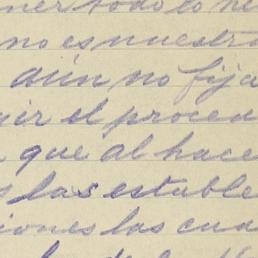 ner todo lo ne
no es nuestra
aún no fija
gir el proced
que al hace
s las estable
iones las cua